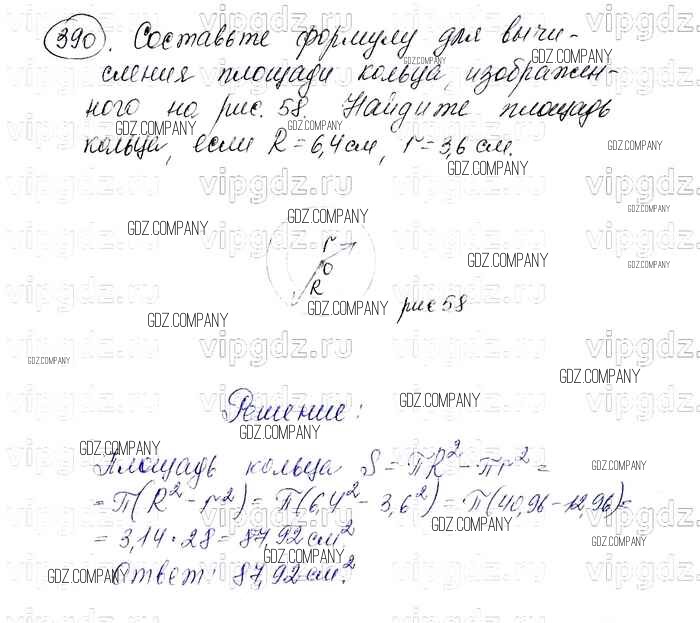 390. Составьте формулу для вычи-
сления площади кольца, изображен-
ного на рис. 58. Найдите площадь
кольца, если R = 6,4 см, r = 3,6 см.
r
O
R
рис 58
Решение:
Площадь кольца S = πR² - πr² =
= π(R² - r²) = π(6,4² - 3,6²) = π(40,96 - 12,96) =
= 3,14 · 28 = 87,92 см²
Ответ: 87,92 см².
vipgdz.ru
GDZ.COMPANY